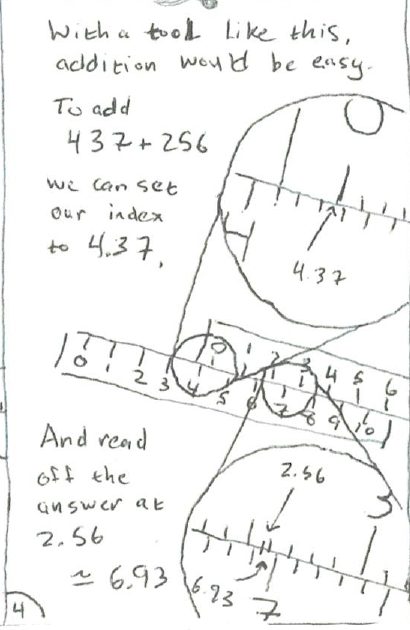 With a tool like this,
addition would be easy.
To add
437 + 256
we can set
our index
to 4.37,
0
4
4.37
0 1 2 3 4 5 6
0 1 2 3 4 5 6 7 8 9 10
And read
off the
answer at
2.56
≈ 6.93
2.56
3
6.93
7
4